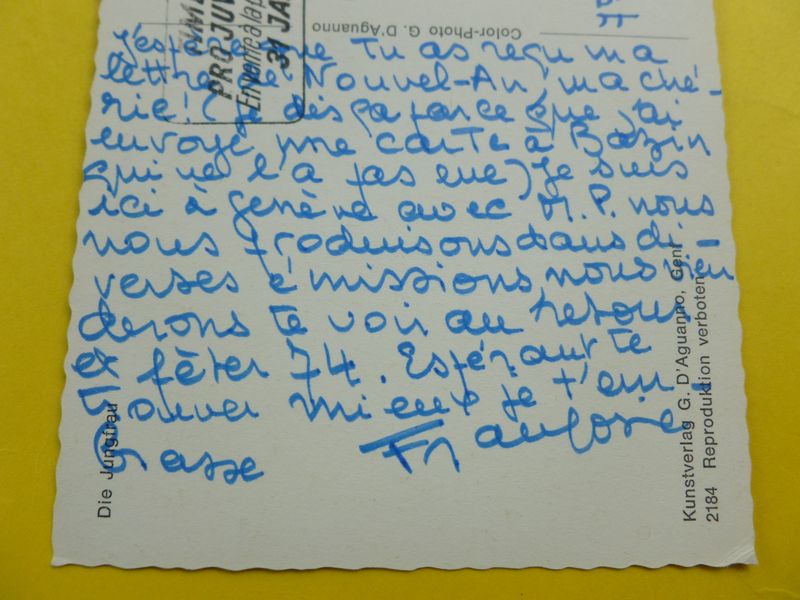 j'espère que tu as reçu ma
lettre de Nouvel-An, ma ché-
rie! (je dis ça parce que j'ai
envoyé une carte à Bazin
qui ne l'a pas eue) je suis
ici à genève avec M.P. nous
nous produisons dans di-
verses émissions, nous vien
derons te voir au retour
et fêter 74. Espérant te
trouver mieux je t'em
brasse Françoise!
PRO JUV
31 JA
Color-Photo G. D'Aguanno
Die Jungfrau
Kunstverlag G. D'Aguanno, Genf
2184 Reproduktion verboten